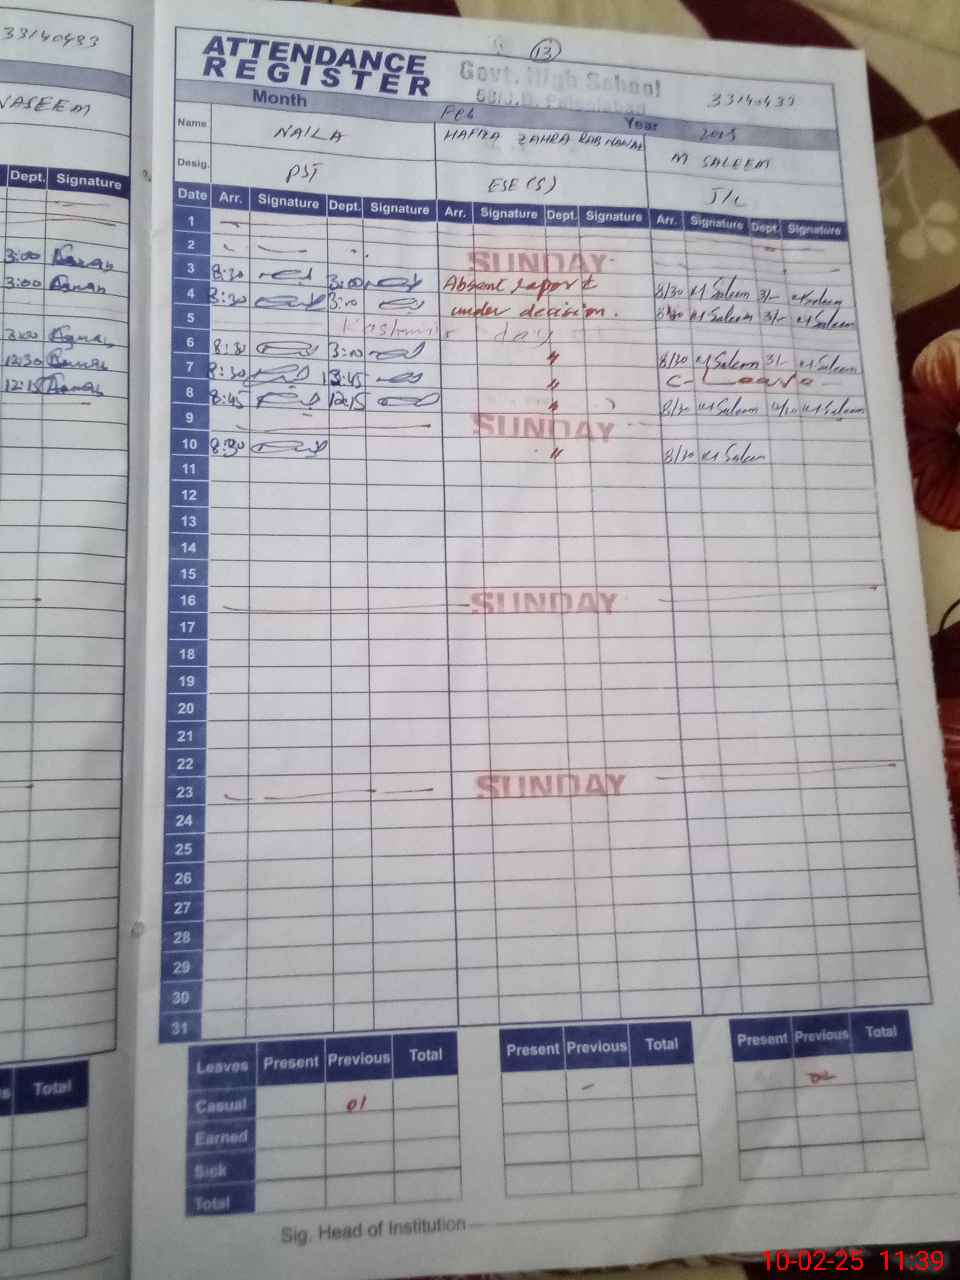 33140433
NASEEM
Dept. Signature
3:00
3:00
3:00
12:30
12:15
Total
13
ATTENDANCE
REGISTER
Govt. High School
33140433
Month Feb Year
Name NAILA HAFIZA ZAHRA RAB NAWAZ M SALEEM
Desig. PST ESE (S) J/C
Date Arr. Signature Dept. Signature Arr. Signature Dept. Signature Arr. Signature Dept. Signature
1
2 SUNDAY
3 8:30 3:00 Absent report 8/30 M Saleem 3/- M Saleem
4 8:30 3:00 under decision. 8/30 M Saleem 3/- M Saleem
5 Kashmir day
6 8:30 3:00 " 8/30 M Saleem 3/- M Saleem
7 8:30 " C- Leave
8 8:45 12:15 " 8/30 M Saleem M Saleem
9 SUNDAY
10 8:30 " 8/30 M Saleem
11
12
13
14
15
16 SUNDAY
17
18
19
20
21
22
23 SUNDAY
24
25
26
27
28
29
30
31
Leaves Present Previous Total Present Previous Total Present Previous Total
Casual 01 -
Earned
Sick
Total
Sig. Head of Institution
10-02-25 11:39